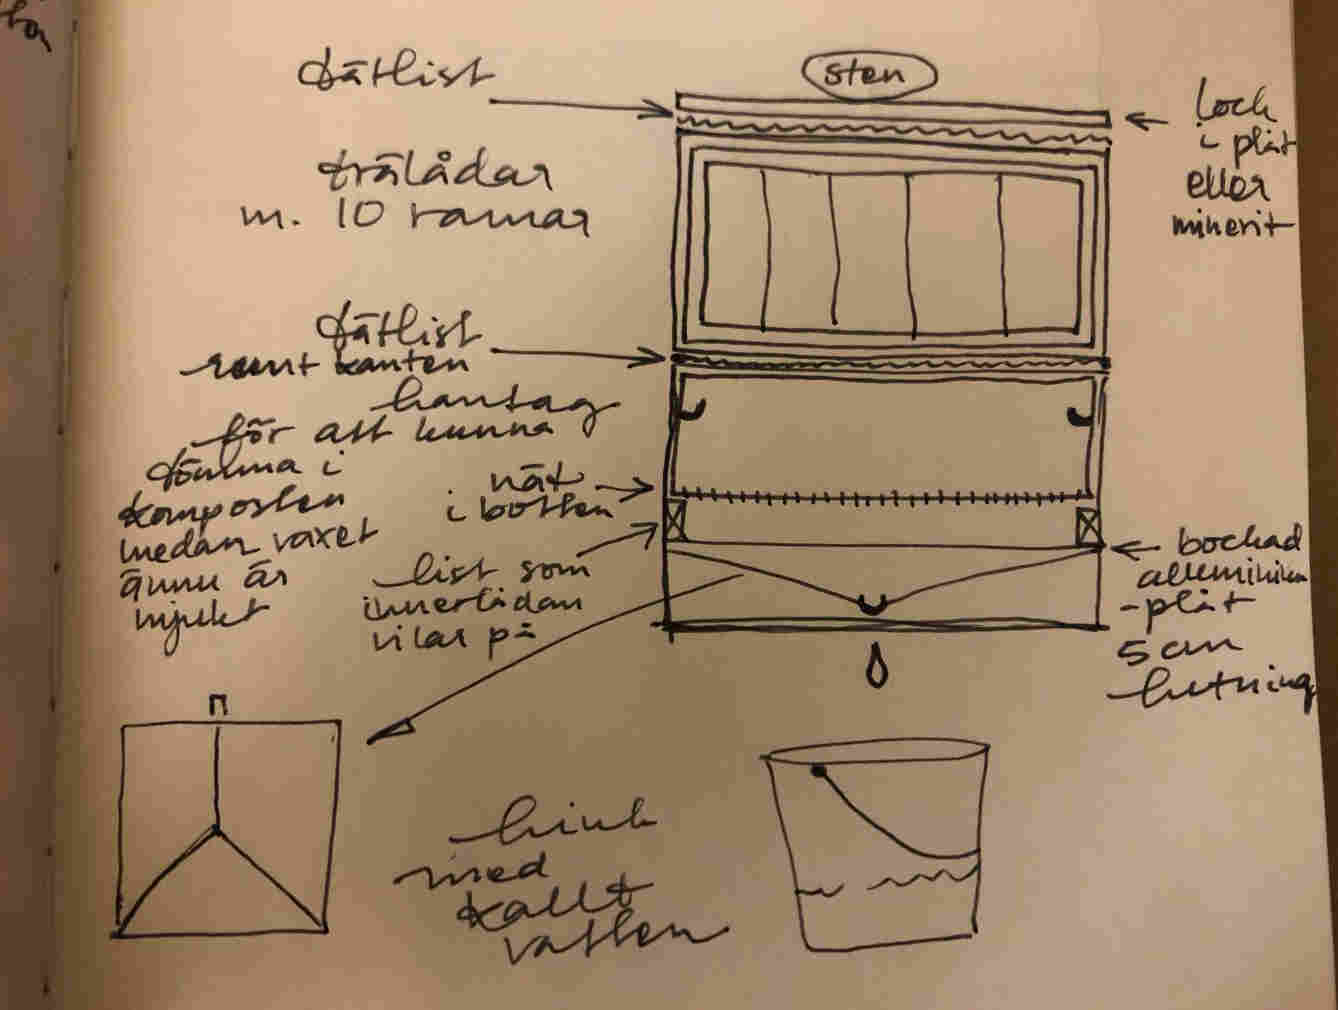 tätlist
sten
lock
i plåt
eller
minerit
trälådar
m. 10 ramar
tätlist
runt kanten
hantag
för att kunna
tömma i
komposten
medan vaxet
ännu är
mjukt
nät
i botten
list som
innerlådan
vilar på
bockad
alluminium
-plåt
5 cm
lutning
hink
med
kallt
vatten